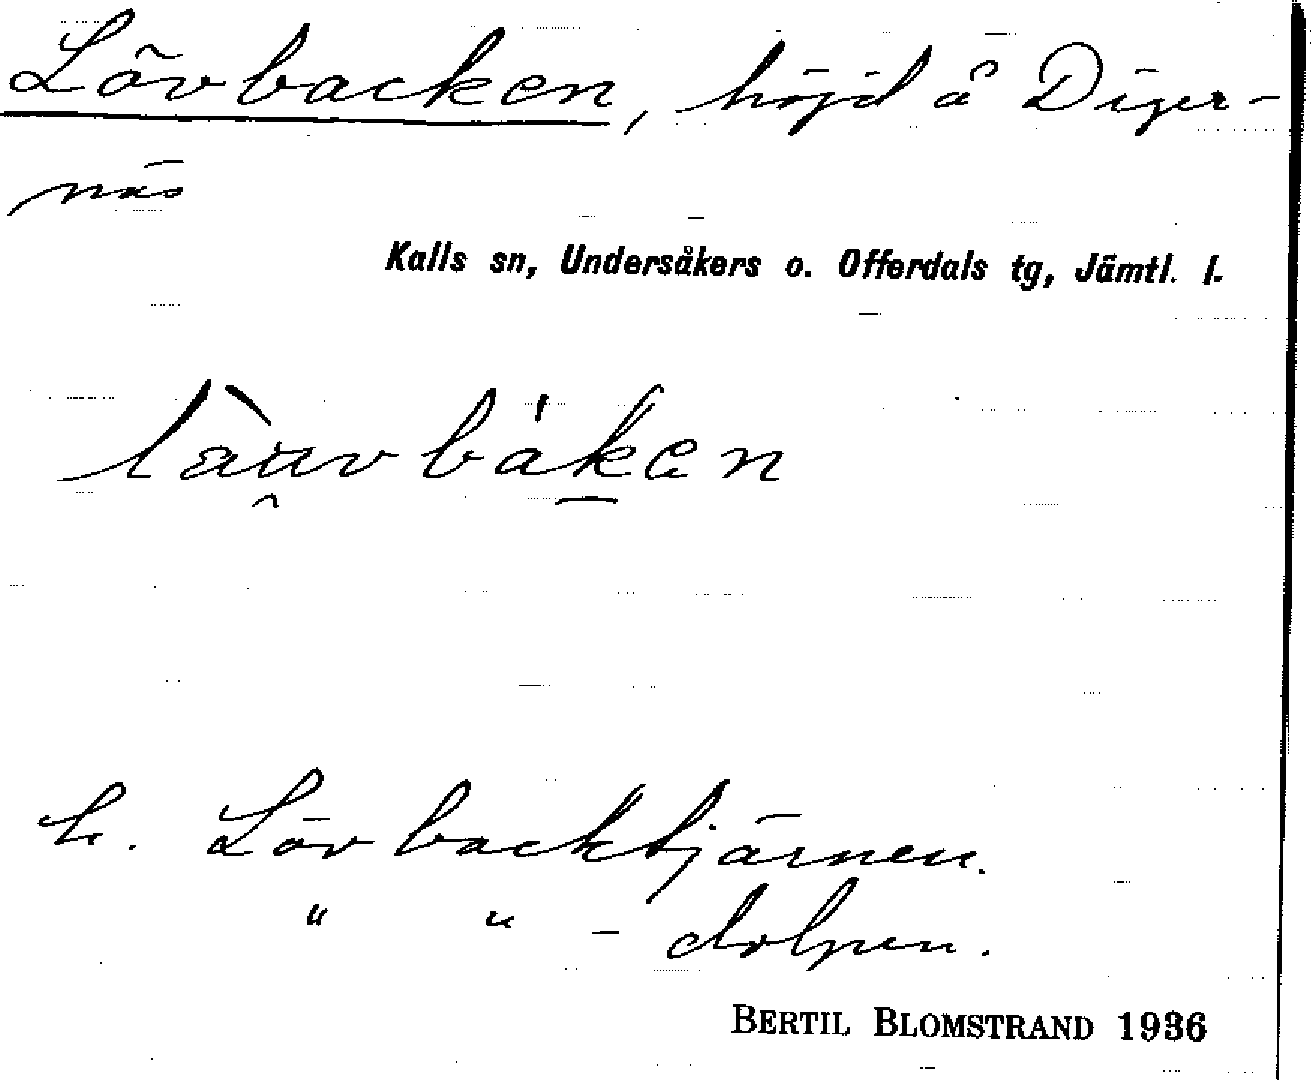 Lövbacken, höjd å Diger-
näs
Kalls sn, Undersåkers o. Offerdals tg, Jämtl. l.
làu̯vbá́ḵen
h. Lövbacktjärnen.
" " - dolpen.
BERTIL BLOMSTRAND 1936